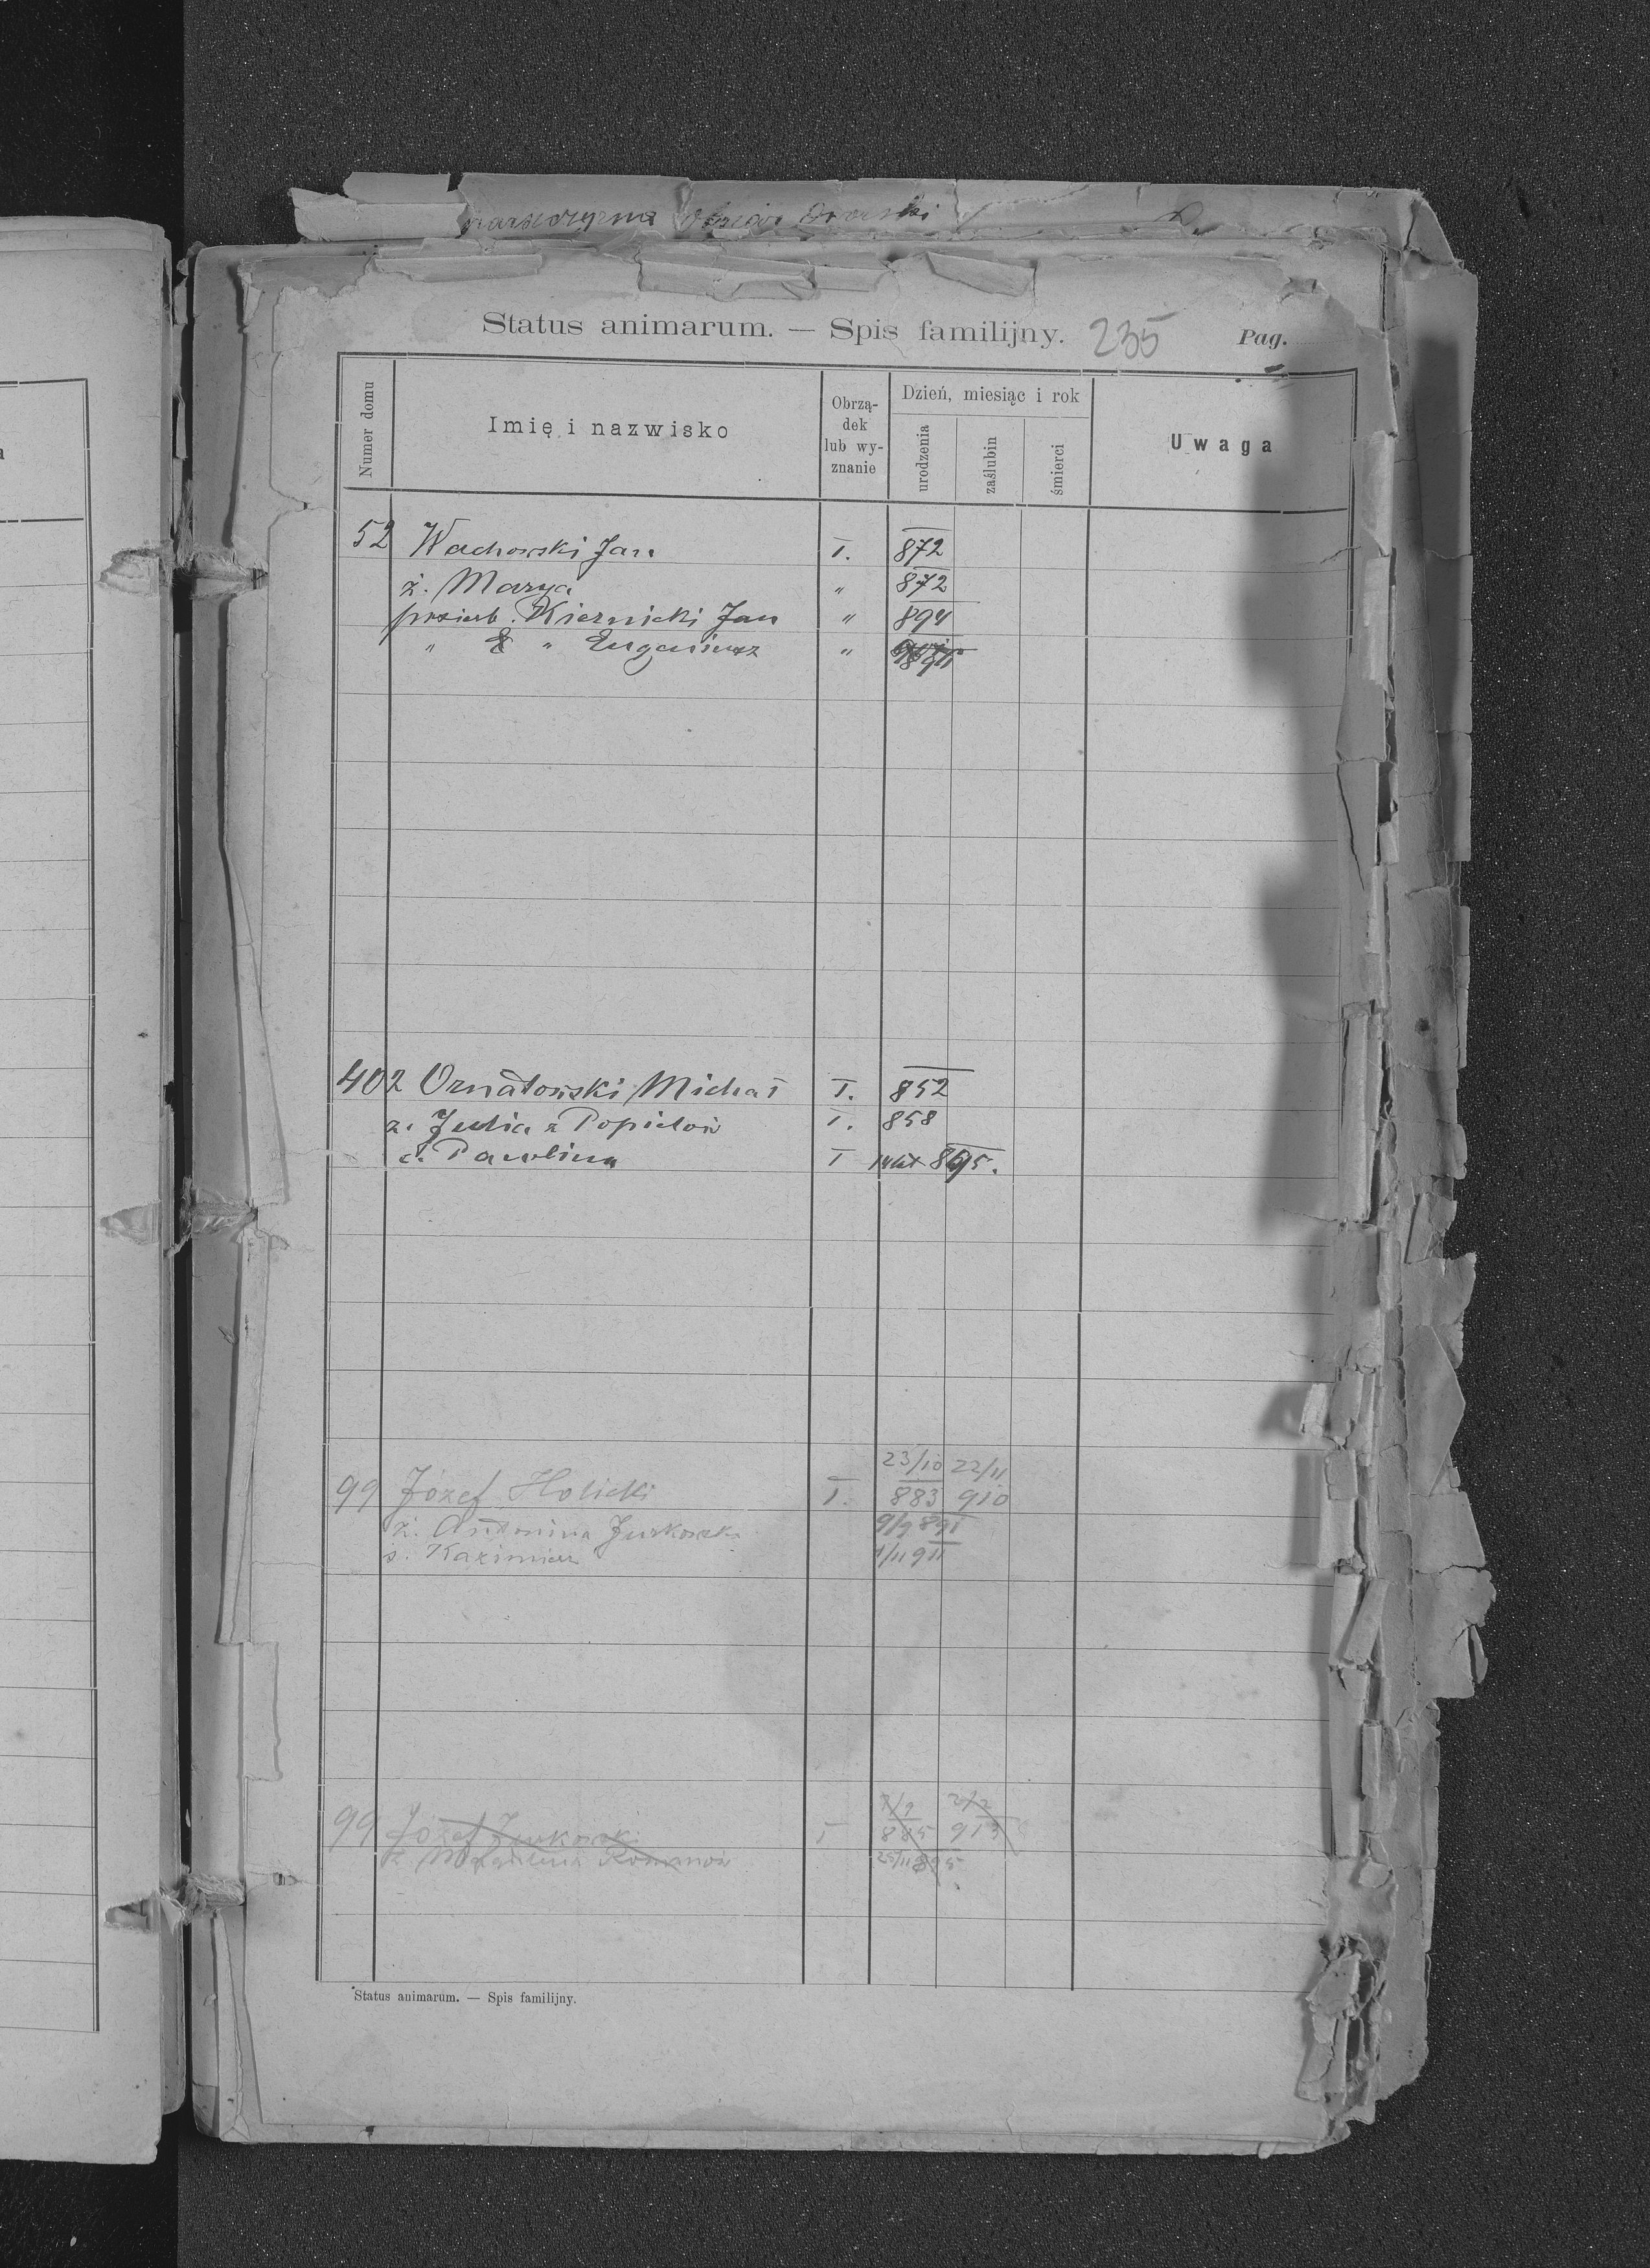 Status animarum. — Spis familijny. 235 Pag.
Numer domu
Imię i nazwisko
Obrzą-
dek
lub wy-
znanie
Dzień, miesiąc i rok
urodzenia
zaślubin
śmierci
Uwaga
52 Wachowski Jan ł. 872
ż. Marya " 872
Kiernicki Jan " 894
" " Eugeniusz "
402 Ornatowski Michał ł. 852
ż. Julia z Popielów ł. 858
c. Paulina ł 14 lat 895.
23/10 22/11
99 Józef Holicki ł. 883 910
ż. Antonina Jurkowska 9/9 891
s. Kazimierz 1/11 911
99 Józef Jurkowski ł 885 913
ż Magdalena Romanów 25/11 895
Status animarum. — Spis familijny.